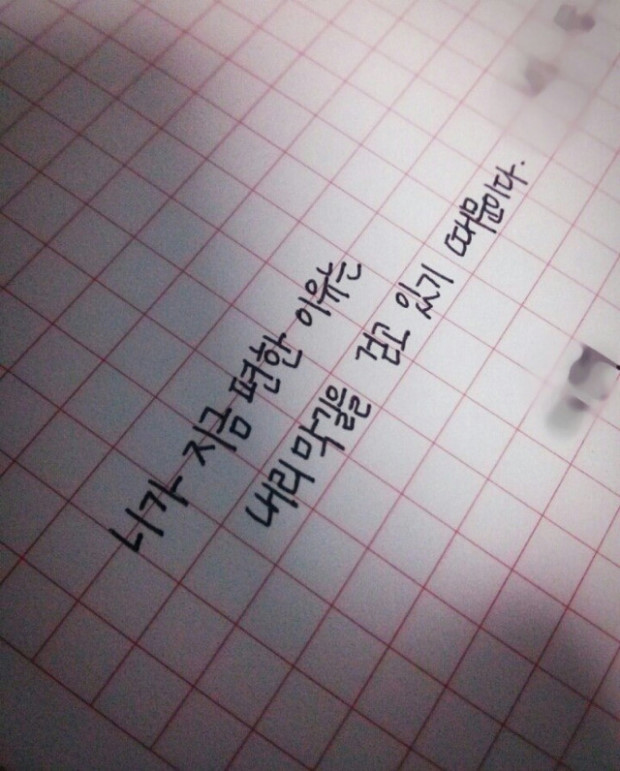 니가 지금 편한 이유는
내리막길을 걷고 있기 때문이다.